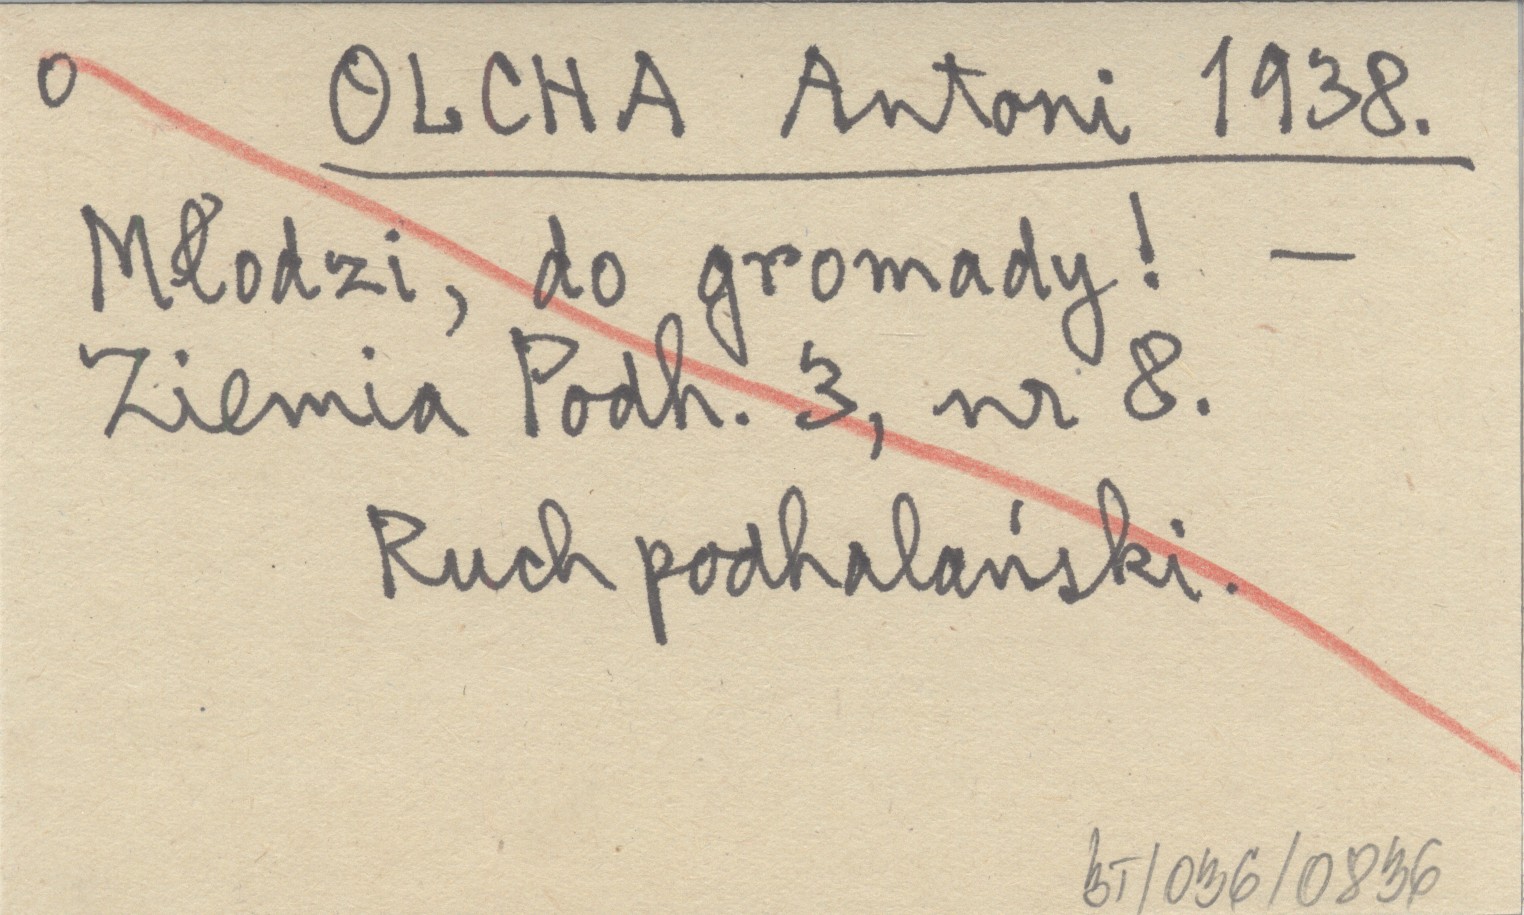 o OLCHA Antoni 1938.
Młodzi, do gromady! —
Ziemia Podh. 3, nr 8.
Ruch podhalański.
BT/036/0836